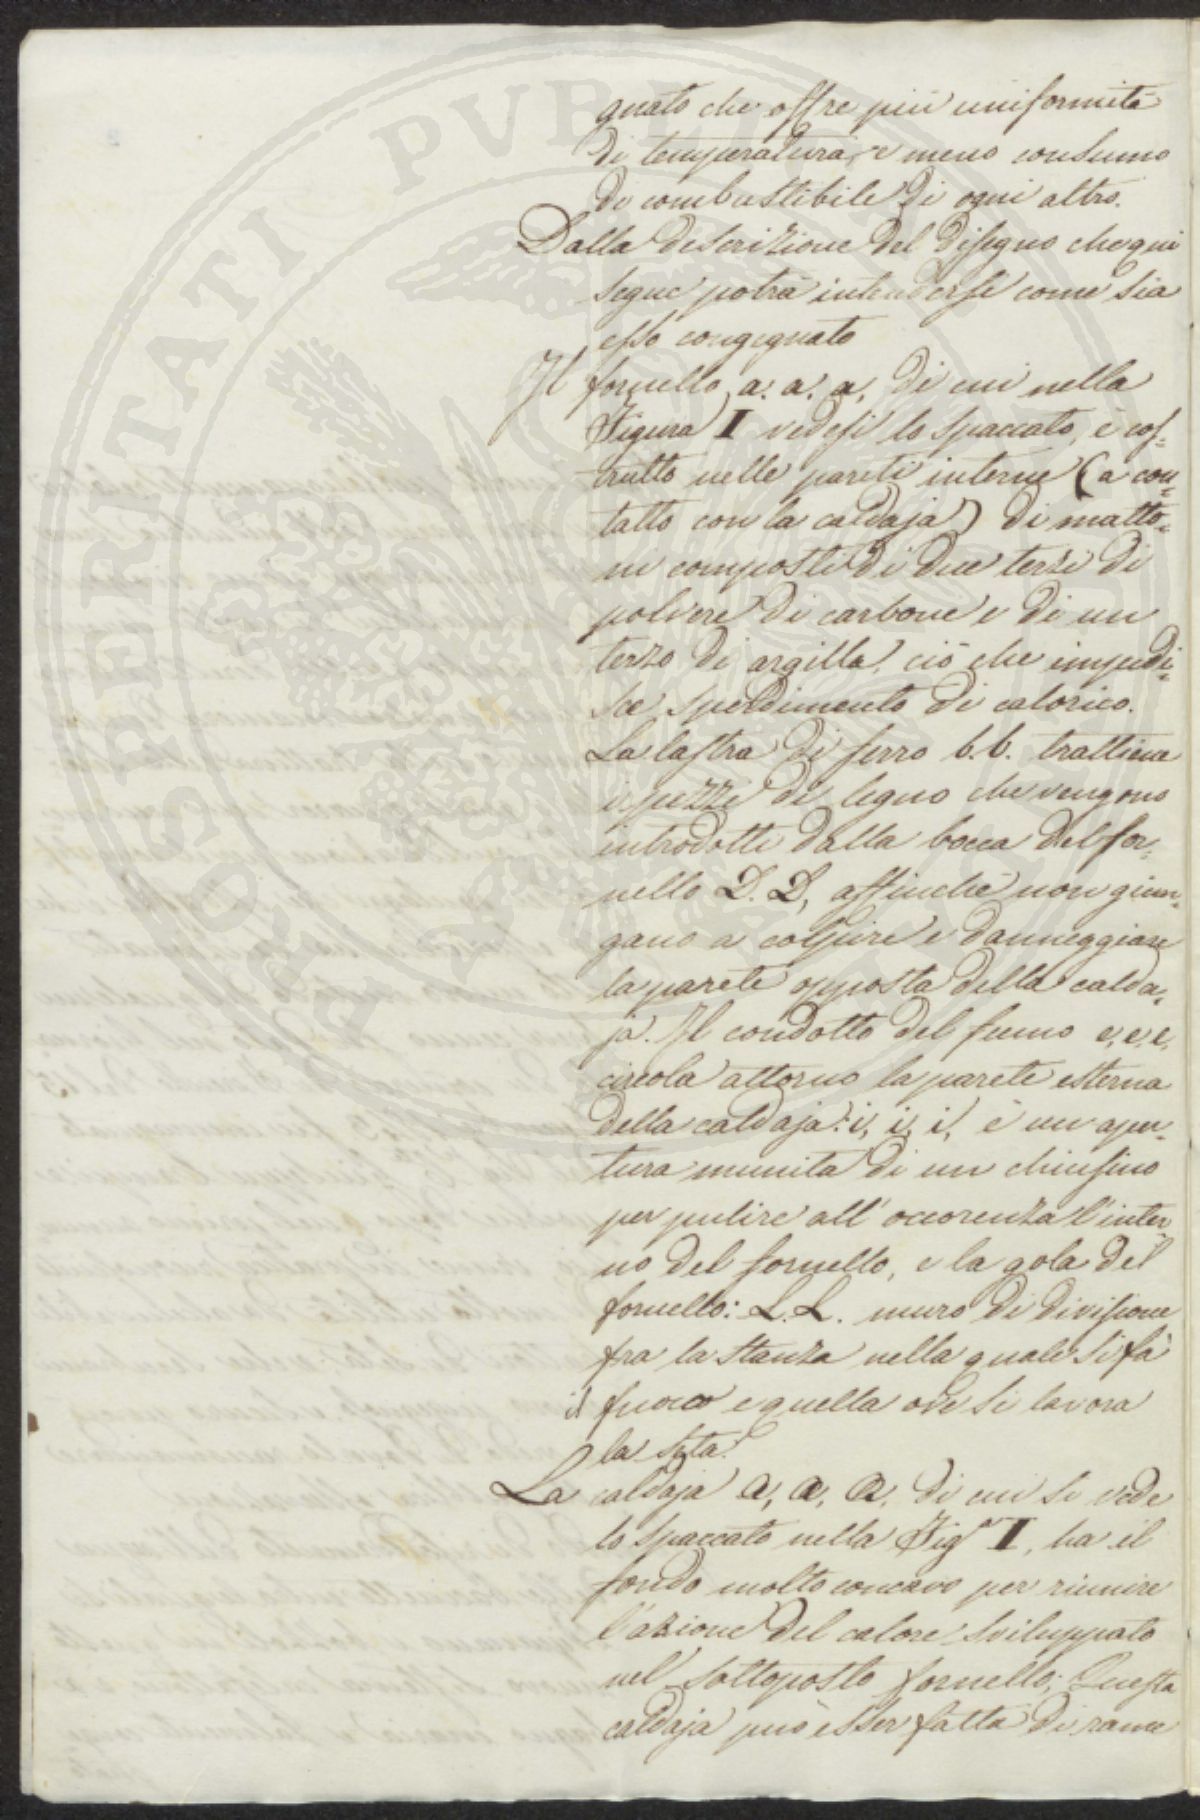 gnato che offre più uniformità
di temperatura, e meno consumo
di combustibile di ogni altro.
Dalla descrizione del disegno che qui
segue potrà intendersi come sia
esso congegnato
Il fornello a. a. a. di cui nella
Figura I vedesi lo spaccato, è cos=
trutto nelle pareti interne (a con=
tatto con la caldaja) di matto=
ni composti di due terzi di
polvere di carbone e di un
terzo di argilla, ciò che impedi=
sce sperdimento di calorico.
La lastra di ferro b. b. trattiene
i pezzi di legno che vengono
introdotti dalla bocca del for=
nello D. D, affinché non giun=
gano a colpire e danneggiare
la parete opposta della calda=
ja. Il condotto del fumo e, e, e,
circola attorno la parete esterna
della caldaja: i, i, i, è un aper=
tura munita di un chiusino
per pulire all'occorenza l'inter=
no del fornello, e la gola del
fornello: L. L. muro di divisione
fra la stanza nella quale si fà
il fuoco e quella ove si lavora
la seta.
La caldaja a, a, a, di cui si vede
lo spaccato nella Figª I, ha il
fondo molto concavo per riunire
l'azione del calore sviluppato
nel sottoposto fornello; Questa
caldaja può esser fatta di rame
PROSPERITATI PVBLICAE